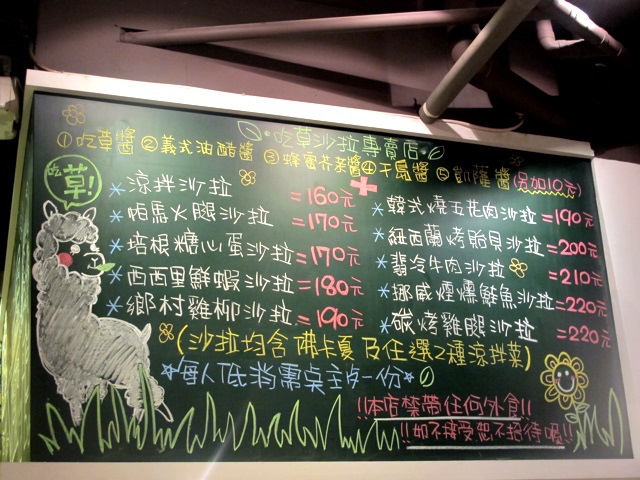 吃草沙拉專賣店
①吃草醬 ②義式油醋醬 ③蜂蜜芥茉醬 ④千島醬 ⑤凱薩醬(另加10元)
吃草!
涼拌沙拉 =160元
帕馬火腿沙拉 =170元
培根糖心蛋沙拉 =170元
西西里鮮蝦沙拉 =180元
鄉村雞柳沙拉 =190元
韓式燒五花肉沙拉 =190元
紐西蘭烤貽貝沙拉 =200元
翡冷牛肉沙拉 =210元
挪威煙燻鮭魚沙拉 =220元
碳烤雞腿沙拉 =220元
(沙拉均含佛卡夏及任選2種涼拌菜)
每人低消需点主夕一份
!!本店禁帶任何外食!!
!!如不接受恕不招待喔!!